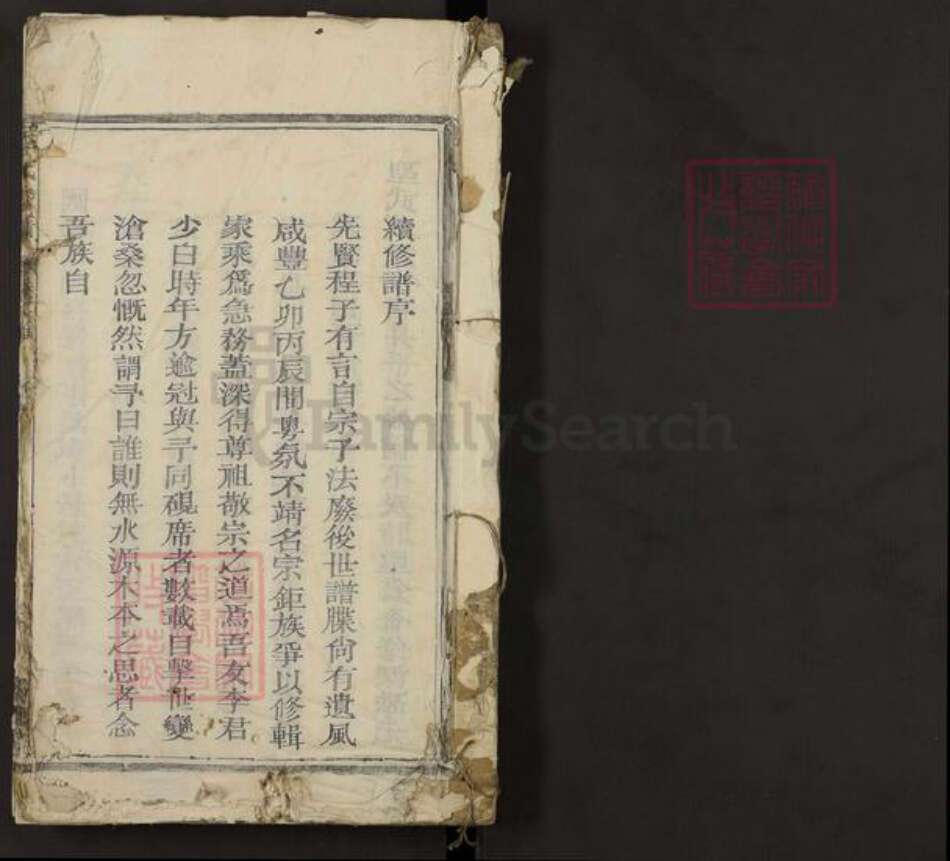 續修譜序
先賢程子有言自宗子法廢後世譜牒尙有遺風
咸豐乙卯丙辰間粵氛不靖名宗鉅族爭以修輯
家乘爲急務蓋深得尊祖敬宗之道焉吾友李君
少白時年方逾冠與予同硯席者數載目擊世變
滄桑忽慨然謂予曰誰則無水源木本之思者念
吾族自
FamilySearch